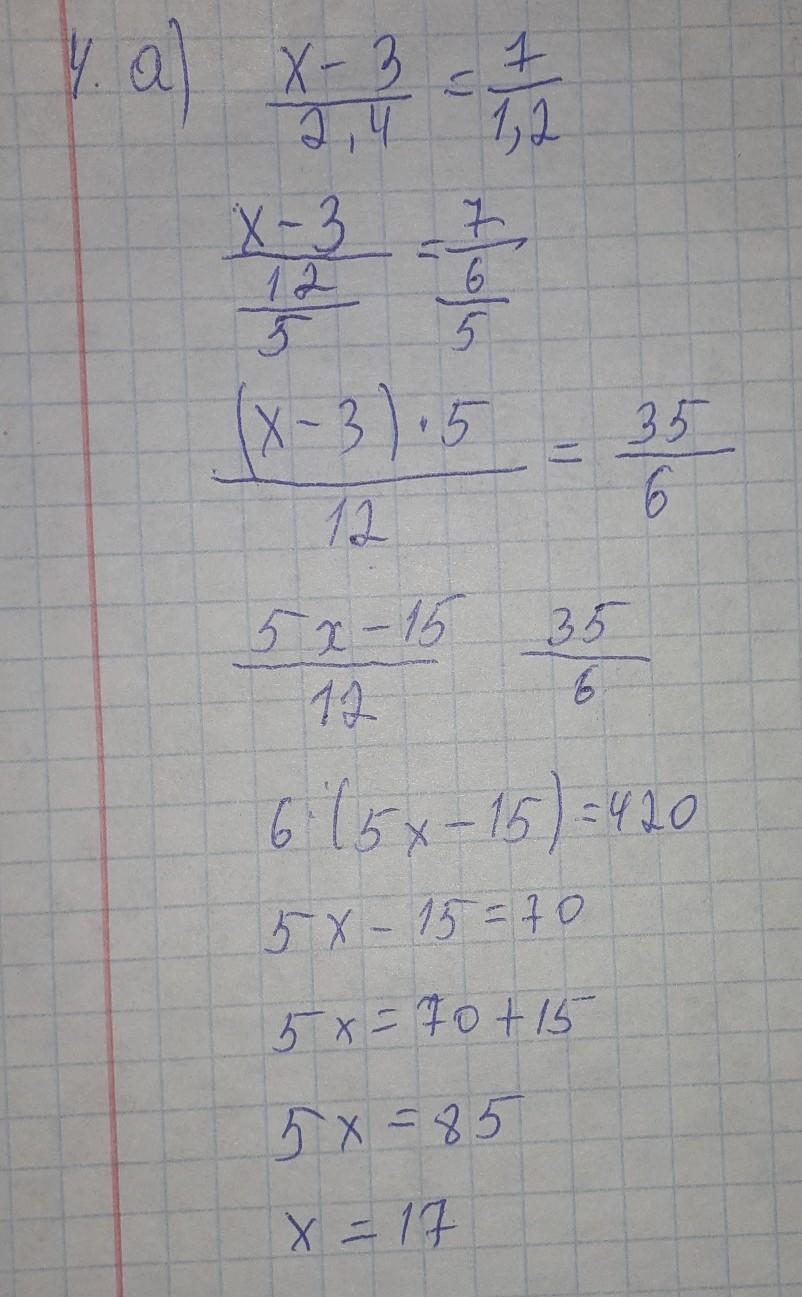 4. а) (x-3)/2,4 = 7/1,2
(x-3)/(12/5) = 7/(6/5)
((x-3)·5)/12 = 35/6
(5x-15)/12 35/6
6·(5x-15)=420
5x-15=70
5x=70+15
5x=85
x=17